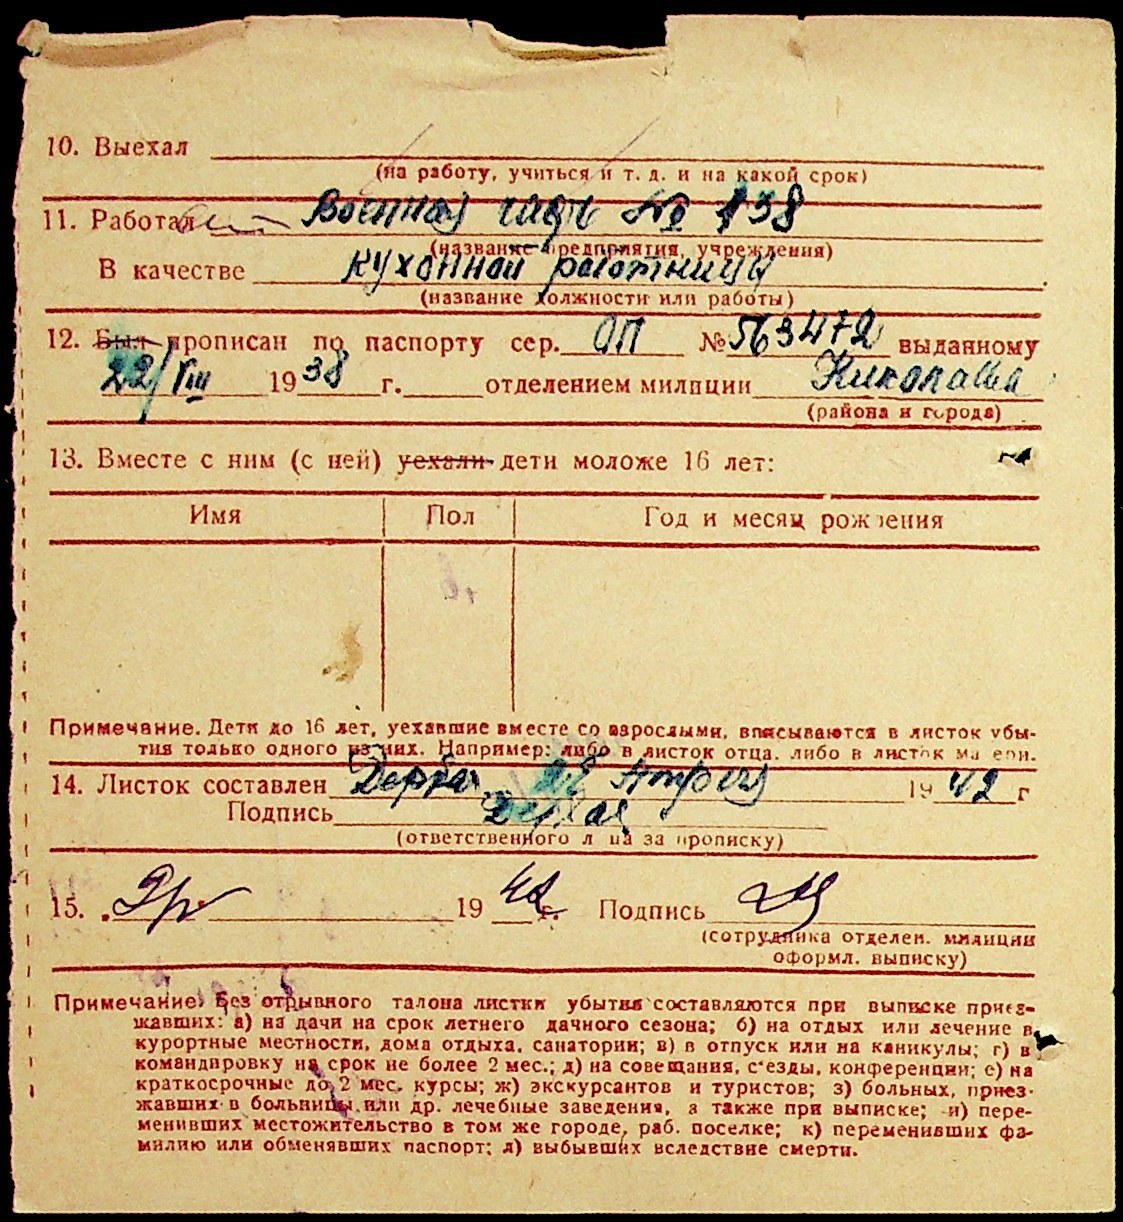 10. Выехал
(на работу, учиться и т. д. и на какой срок)
11. Работал Военная часть № 138
(название предприятия, учреждения)
В качестве кухонной работницы
(название должности или работы)
12. Был прописан по паспорту сер. ОП № 563472 выданному
22/VIII 1938 г. отделением милиции Николаева
(района и города)
13. Вместе с ним (с ней) уехали дети моложе 16 лет:
Имя Пол Год и месяц рождения
Примечание. Дети до 16 лет, уехавшие вместе со взрослыми, вписываются в листок убы-
тия только одного из них. Например: либо в листок отца, либо в листок матери.
14. Листок составлен 1942 г
Подпись
(ответственного лица за прописку)
15. 1942 г. Подпись
(сотрудника отделен. милиции
оформл. выписку)
Примечание. Без отрывного талона листки убытия составляются при выписке приез-
жавших: а) на дачи на срок летнего дачного сезона; б) на отдых или лечение в
курортные местности, дома отдыха, санатории; в) в отпуск или на каникулы; г) в
командировку на срок не более 2 мес.; д) на совещания, с'езды, конференции; е) на
краткосрочные до 2 мес. курсы; ж) экскурсантов и туристов; з) больных, приез-
жавших в больницы или др. лечебные заведения, а также при выписке; и) пере-
менивших местожительство в том же городе, раб. поселке; к) переменивших фа-
милию или обменявших паспорт; л) выбывших вследствие смерти.